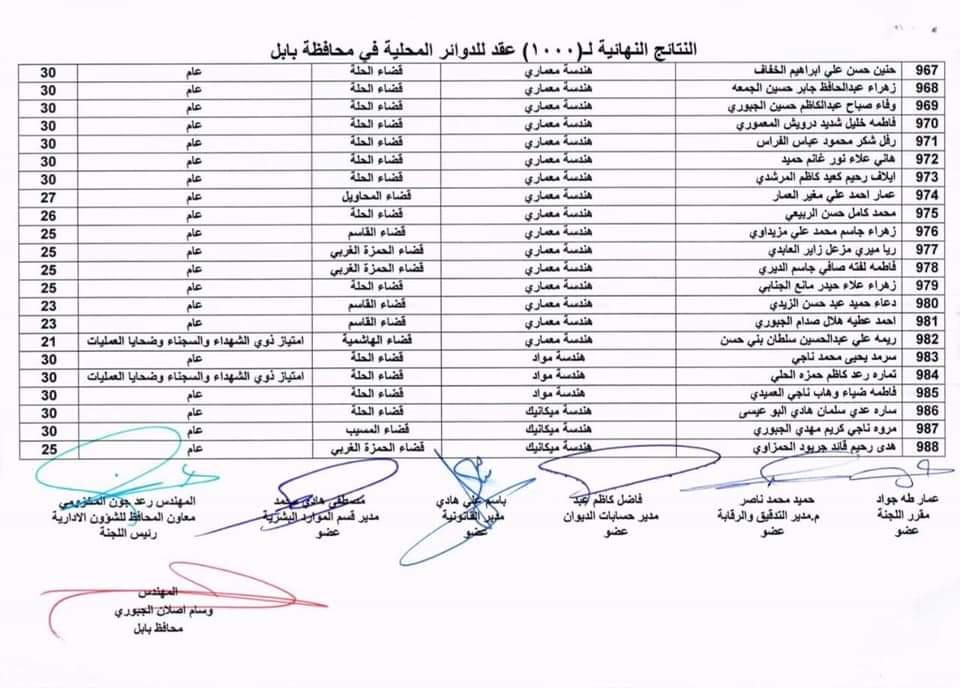 النتائج النهائية لـ(١٠٠٠) عقد للدوائر المحلية في محافظة بابل
967 حنين حسن علي ابراهيم الخفاف هندسة معماري قضاء الحلة عام 30
968 زهراء عبدالحافظ جابر حسين الجمعه هندسة معماري قضاء الحلة عام 30
969 وفاء صباح عبدالكاظم حسين الجبوري هندسة معماري قضاء الحلة عام 30
970 فاطمه خليل شديد درويش المعموري هندسة معماري قضاء الحلة عام 30
971 رفل شكر محمود عباس الفراس هندسة معماري قضاء الحلة عام 30
972 هاني علاء نور غانم حميد هندسة معماري قضاء الحلة عام 30
973 ايلاف رحيم كعيد كاظم المرشدي هندسة معماري قضاء الحلة عام 30
974 عمار احمد علي مغير العمار هندسة معماري قضاء المحاويل عام 27
975 محمد كامل حسن الربيعي هندسة معماري قضاء الحلة عام 26
976 زهراء جاسم محمد علي مزيداوي هندسة معماري قضاء القاسم عام 25
977 ريا ميري مزعل زاير العابدي هندسة معماري قضاء الحمزة الغربي عام 25
978 فاطمه لفته صافي جاسم الديري هندسة معماري قضاء الحمزة الغربي عام 25
979 زهراء علاء حيدر مانع الجنابي هندسة معماري قضاء الحلة عام 25
980 دعاء حميد عبد حسن الزيدي هندسة معماري قضاء القاسم عام 23
981 احمد عطيه هلال صدام الجبوري هندسة معماري قضاء القاسم عام 23
982 ريمه علي عبدالحسين سلطان بني حسن هندسة معماري قضاء الهاشمية امتياز ذوي الشهداء والسجناء وضحايا العمليات 21
983 سرمد يحيى محمد ناجي هندسة مواد قضاء الحلة عام 30
984 تماره رعد كاظم حمزه الحلي هندسة مواد قضاء الحلة امتياز ذوي الشهداء والسجناء وضحايا العمليات 30
985 فاطمه ضياء وهاب ناجي العميدي هندسة مواد قضاء الحلة عام 30
986 ساره عدي سلمان هادي البو عيسى هندسة ميكانيك قضاء الحلة عام 30
987 مروه ناجي كريم مهدي الجبوري هندسة ميكانيك قضاء المسيب عام 30
988 هدى رحيم قائد جريود الحمزاوي هندسة ميكانيك قضاء الحمزة الغربي عام 25
عمار طه جواد
مقرر اللجنة
عضو
حميد محمد ناصر
م.مدير التدقيق والرقابة
عضو
فاضل كاظم عبد
مدير حسابات الديوان
عضو
باسم علي هادي
مدير القانونية
عضو
مصطفى هادي محمد
مدير قسم الموارد البشرية
عضو
المهندس رعد جون المخزومي
معاون المحافظ للشؤون الادارية
رئيس اللجنة
المهندس
وسام اصلان الجبوري
محافظ بابل